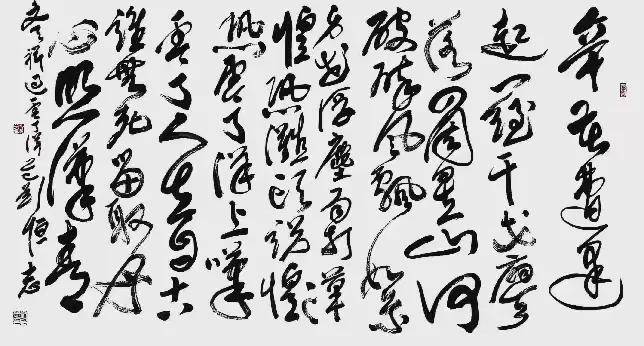 辛苦遭逢
起一经干戈寥
落四周星山河
破碎风飘絮
身世浮沉雨打萍
惶恐滩头说惶
恐零丁洋里叹
零丁人生自古
谁无死留取丹
心照汗青
文天祥过零丁洋 恒志